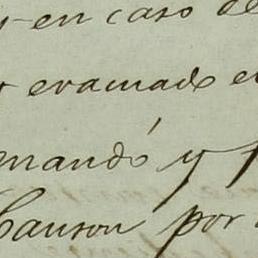 y en caso de
evacuado e
mandó y
Causon por